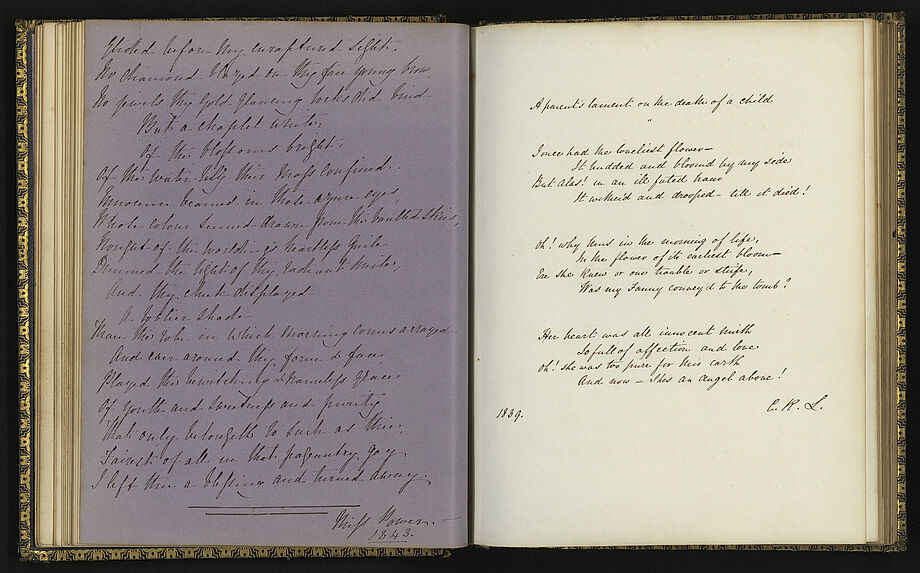 Glided before my enraptured sight.
No diamond blazed on thy fair young brow,
No jewels thy gold-glancing locks did bind
But a chaplet white,
Of the blossoms bright,
Of the water-lily their mass confined.
Innocence beamed in those azure eyes,
Whose colour seemed drawn from the vaulted skies,
Nought of the world-gs heartless guile
Dimmed the light of thy radiant smile,
And thy cheek displayed
A nobler shade
Than the robe in which morning comes arrayed
And ever around thy form & face
Played the bewitching & nameless grace
Of youth and sweetness and purity
That only belongeth to such as thee,
Fairest of all in that pageantry gay
I left thee a blessing and turned away.
Miss Power.
1843.
A parent's lament on the death of a child
I once had the loveliest flower—
It budded and bloom'd by my side
But alas! in an ill fated hour
It wither'd and drooped— till it died!
Oh! why thus in the morning of life,
In the flower of its earliest bloom—
Ere she knew or one trouble or strife,
Was my Fanny convey'd to the tomb?
Her heart was all innocent mirth
So full of affection and love
Oh! she was too pure for this earth
And now — Shes an angel above!
1839.
C. R. L.